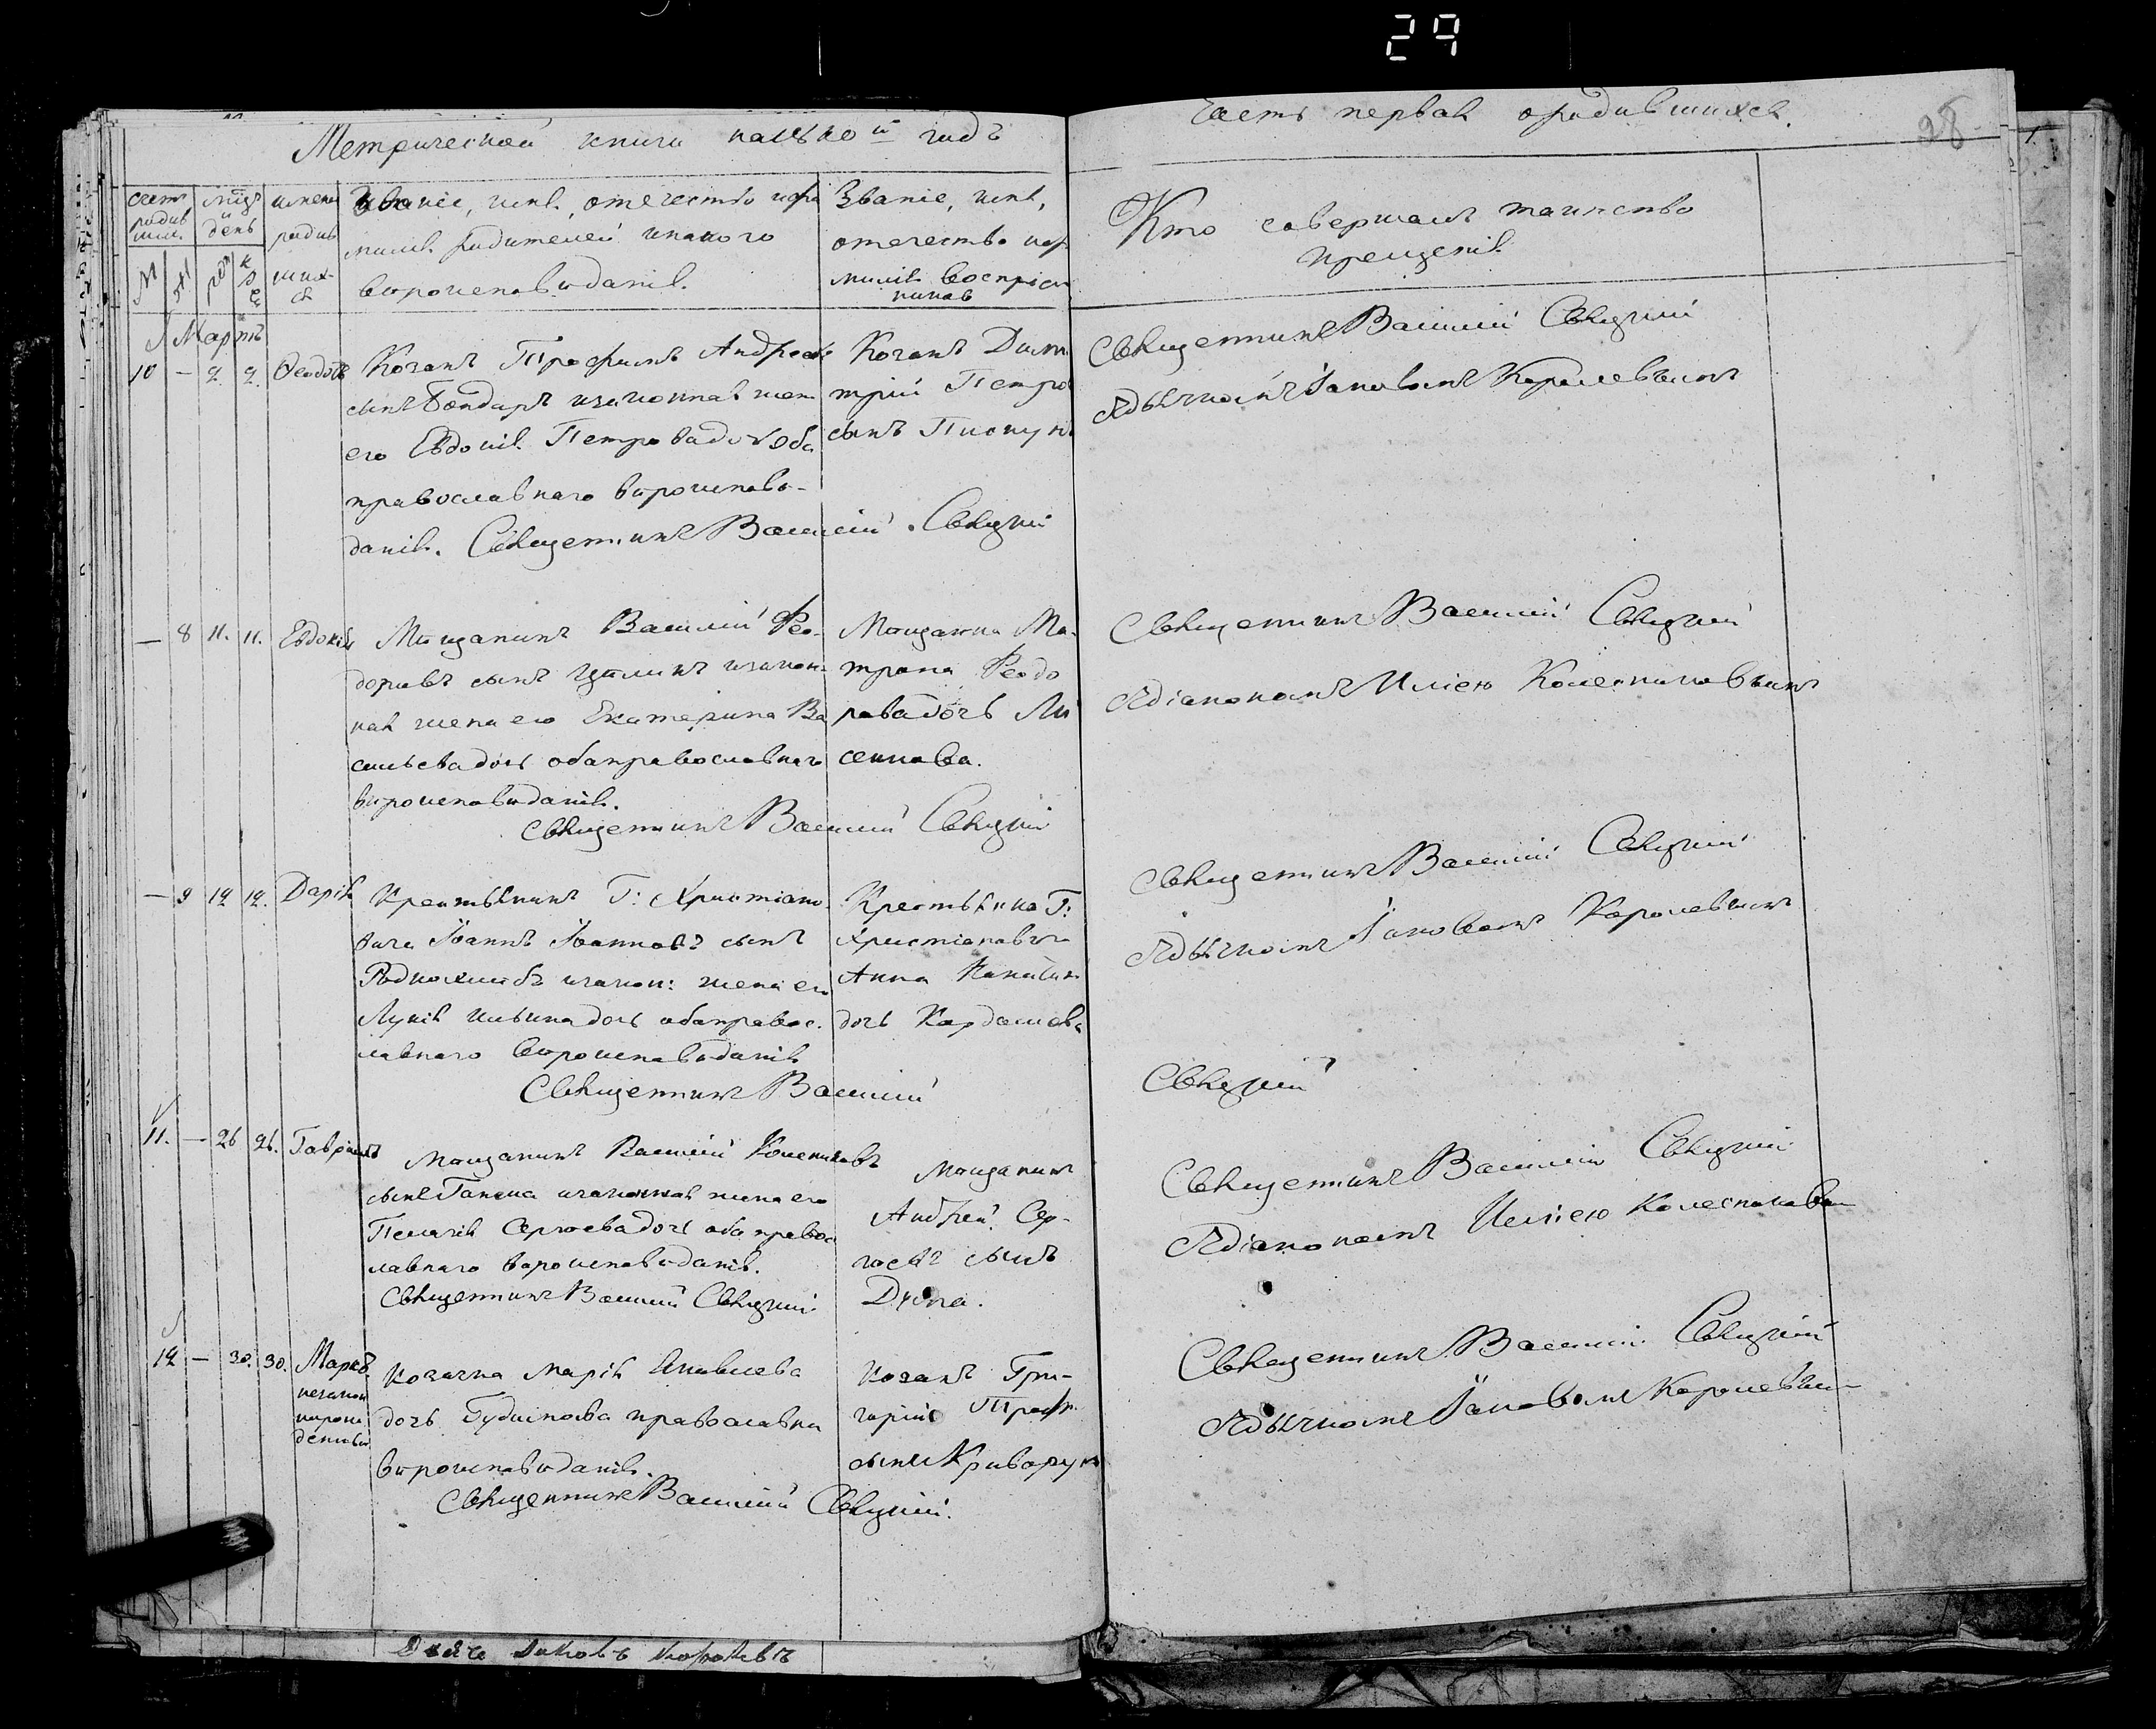 29
Метрической книги на 1840й годъ
Часть первая о родившихся.
28
счетъ родив шихс.
мцъ и день
имена родив шихся
Званіе, имя, отечество и фа
милія родителей и какого
вѣроисповѣданія.
Званіе, имя,
отечество и фа
милія воспріем
никовъ
Кто совершалъ таинство
крещенія
М Ж рож кре
Мартъ
10 — 2. 2. Ѳеодотъ
Козакъ Трофимъ Андреевъ
сынъ Бондарь и законная жена
его Евдокія Петрова дочь оба
православнаго вѣроисповѣ-
данія. Священникъ Василій Сѣцкій
Козакъ Дими
трій Петро
сынъ Пискунъ
Священникъ Василій Сѣцкій
Ядьячкомъ Іаковомъ Королевымъ
— 8 11. 11. Евдокія
Мѣщанинъ Василій Ѳео-
доровъ сынъ и закон-
ная жена его Екатерина Ва
сильева дочь оба православнаго
вѣроисповѣданія.
Священникъ Василій Сѣцкій
Мѣщанка Ма-
трона Ѳеодо
рова дочь Ли
сенкова.
Священникъ Василій Сѣцкій
Ядіакономъ Иліею Колесниковымъ
— 9 12 12. Дарія
Крестьянинъ Г: Христіано-
вича Іоаннъ Іоанновъ сынъ
и закон: жена его
Лукія Ильина дочь оба правос-
лавнаго вѣроисповѣданія
Священникъ Василій
Сѣцкій
Крестьянка Г:
Христіановича
Анна
дочь Кардашова
Священникъ Василій Сѣцкій
Ядьячкомъ Іаковомъ Королевымъ
11. — 26 26. Гавріилъ
Мѣщанинъ Василій
сынъ Ганжа и законная жена его
Пелагія Сергѣева дочь оба правос
лавнаго вѣроисповѣданія.
Священникъ Василій Сѣцкій
Мѣщанинъ
Андрей Сер-
гѣевъ сынъ
Священникъ Василій Сѣцкій
Ядіакономъ Иліею Колесниковым
12 — 30. 30. Марко
Козачка Марія Яковлева
дочь Гудимова православна
вѣроисповѣданія.
Священникъ Василій Сѣцкій.
Козакъ Гри-
горій Троф.
сынъ Криворучк
Священникъ Василій Сѣцкій
Ядьячкомъ Іаковомъ Королевым
Дьячъ Іаковъ Королевъ